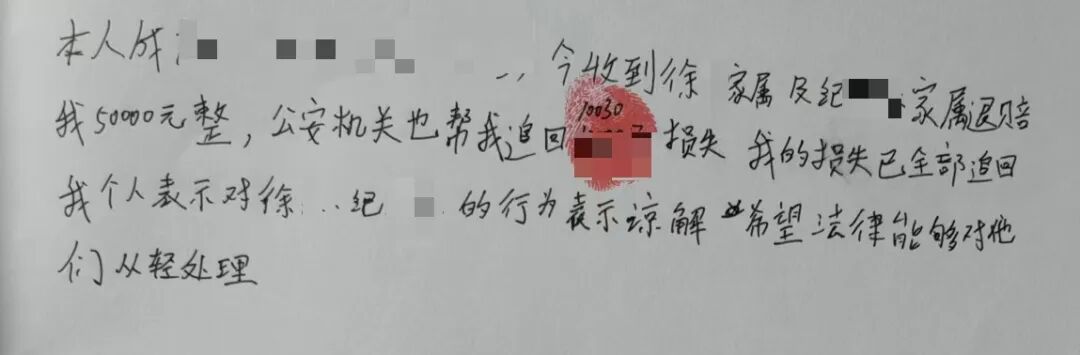 本人成 今收到徐 家属及纪 家属退赔
我50000元整，公安机关也帮我追回10030 损失 我的损失已全部追回
我个人表示对徐 纪 的行为表示谅解 希望法律能够对他
们从轻处理